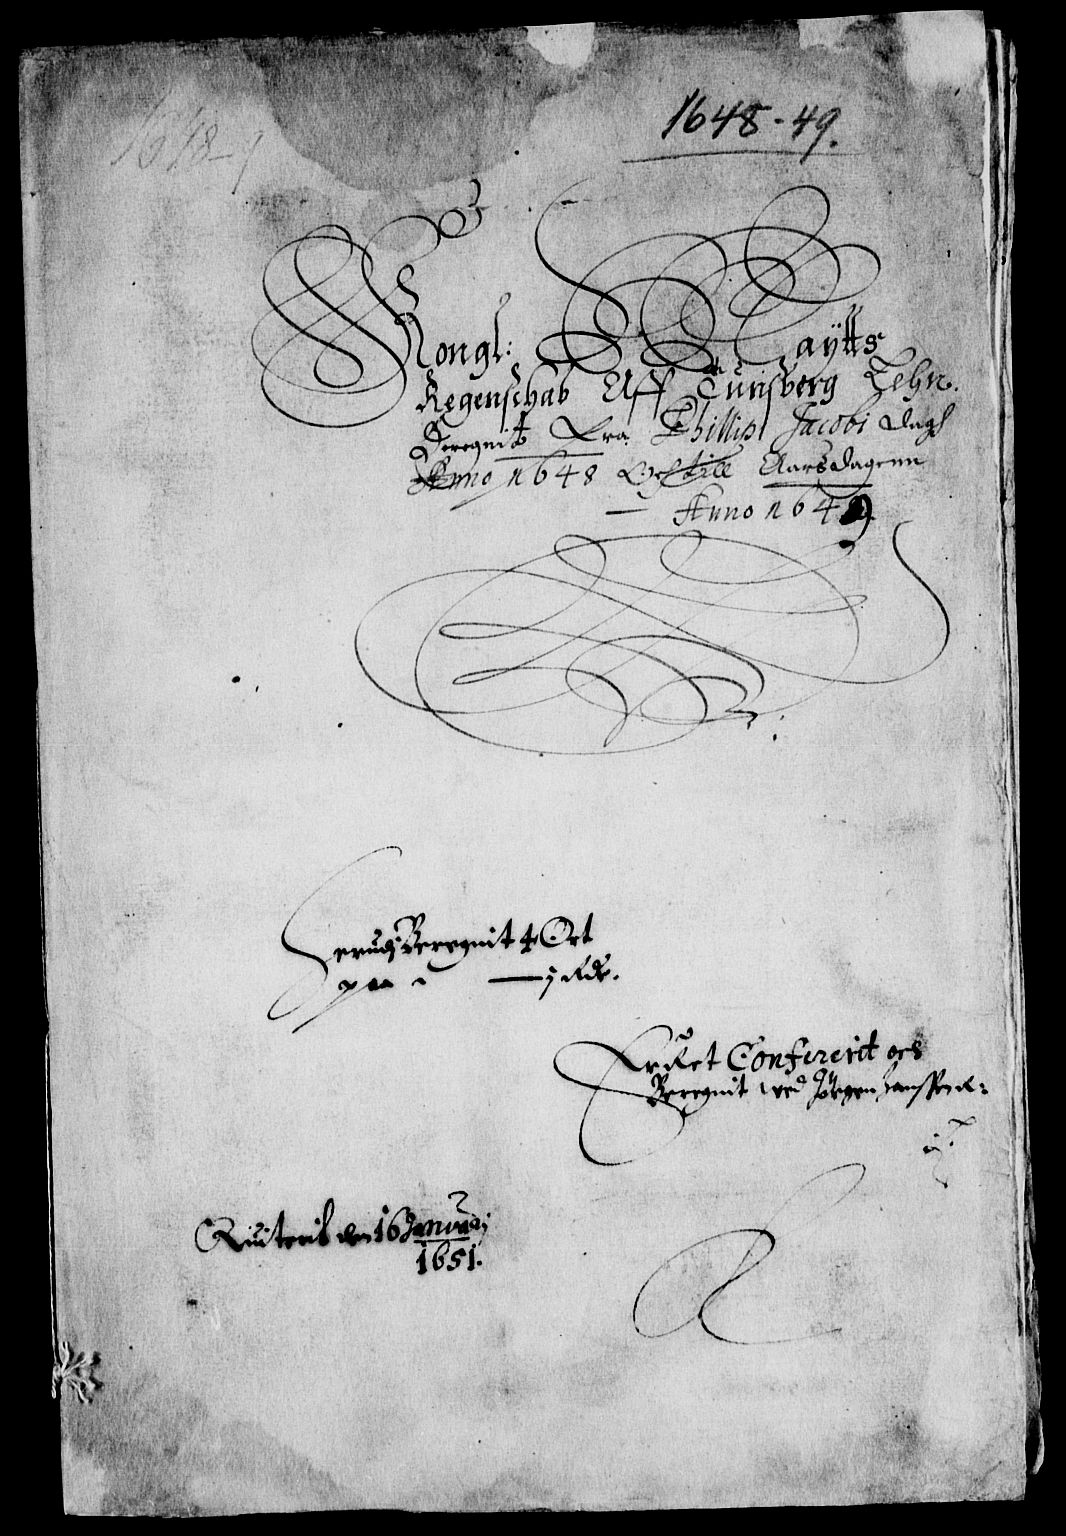 1648-49.
1648-9
Kongl: Maytts
Regenschab Uff Tunsberg Lehn.
Beregnit Fra Phillip Jacobi dagh
Anno 1648 Och till Aarsdagenn
Anno 1649
Herudj Beregnit 4 Ort
paa 1 Rdr.
Er Ret Confererit och
Beregnit wed Jörgen Hanssen
Quiterit den 16 Januarij
1651.